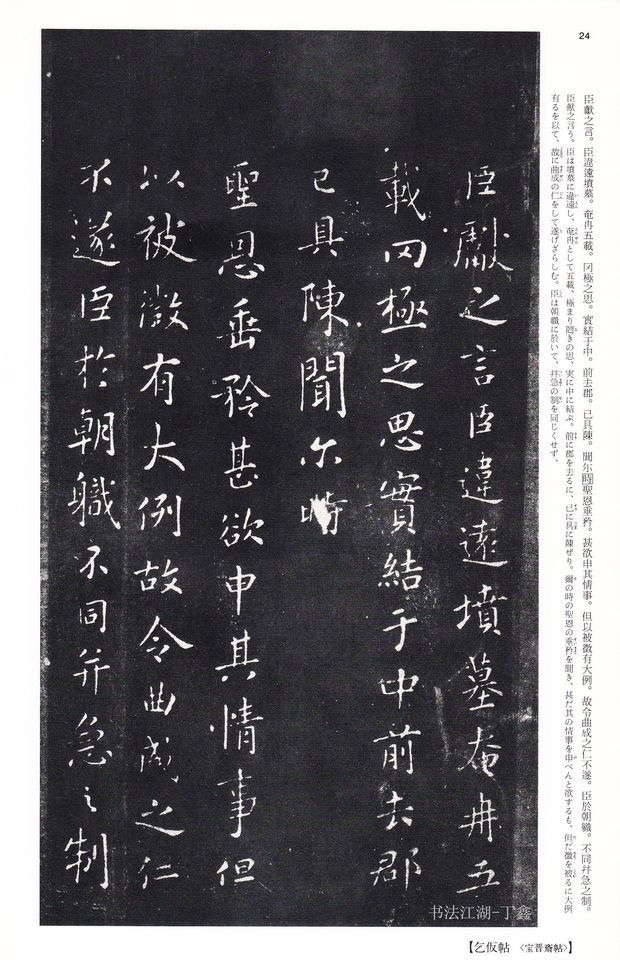 24
臣獻之言。臣違遠墳墓。奄冉五載。罔極之思。實結于中。前去郡。已具陳。聞尓時聖恩垂矜。甚欲申其情事。但以被徵有大例。故令曲成之仁不遂。臣於朝職。不同幷急之制。
臣獻之言う。臣は墳墓に違遠し、奄冉として五載、極まり罔きの思、実に中に結ぶ。前に郡を去るに、已に具に陳ぜり。爾の時の聖恩の垂矜を聞き、甚だ其の情事を申べんと欲するも、但だ徵を被るに大例
有るを以て、故に曲成の仁をして遂げざらしむ。臣は朝職に於いて、幷急の制を同じくせず、
臣獻之言臣違遠墳墓奄冉五
載罔極之思實結于中前去郡
已具陳聞尓時
聖恩垂矜甚欲申其情事但
以被徵有大例故令曲成之仁
不遂臣於朝職不同幷急之制
书法江湖-丁鑫
【乞仮帖 〈宝晋斎帖〉】